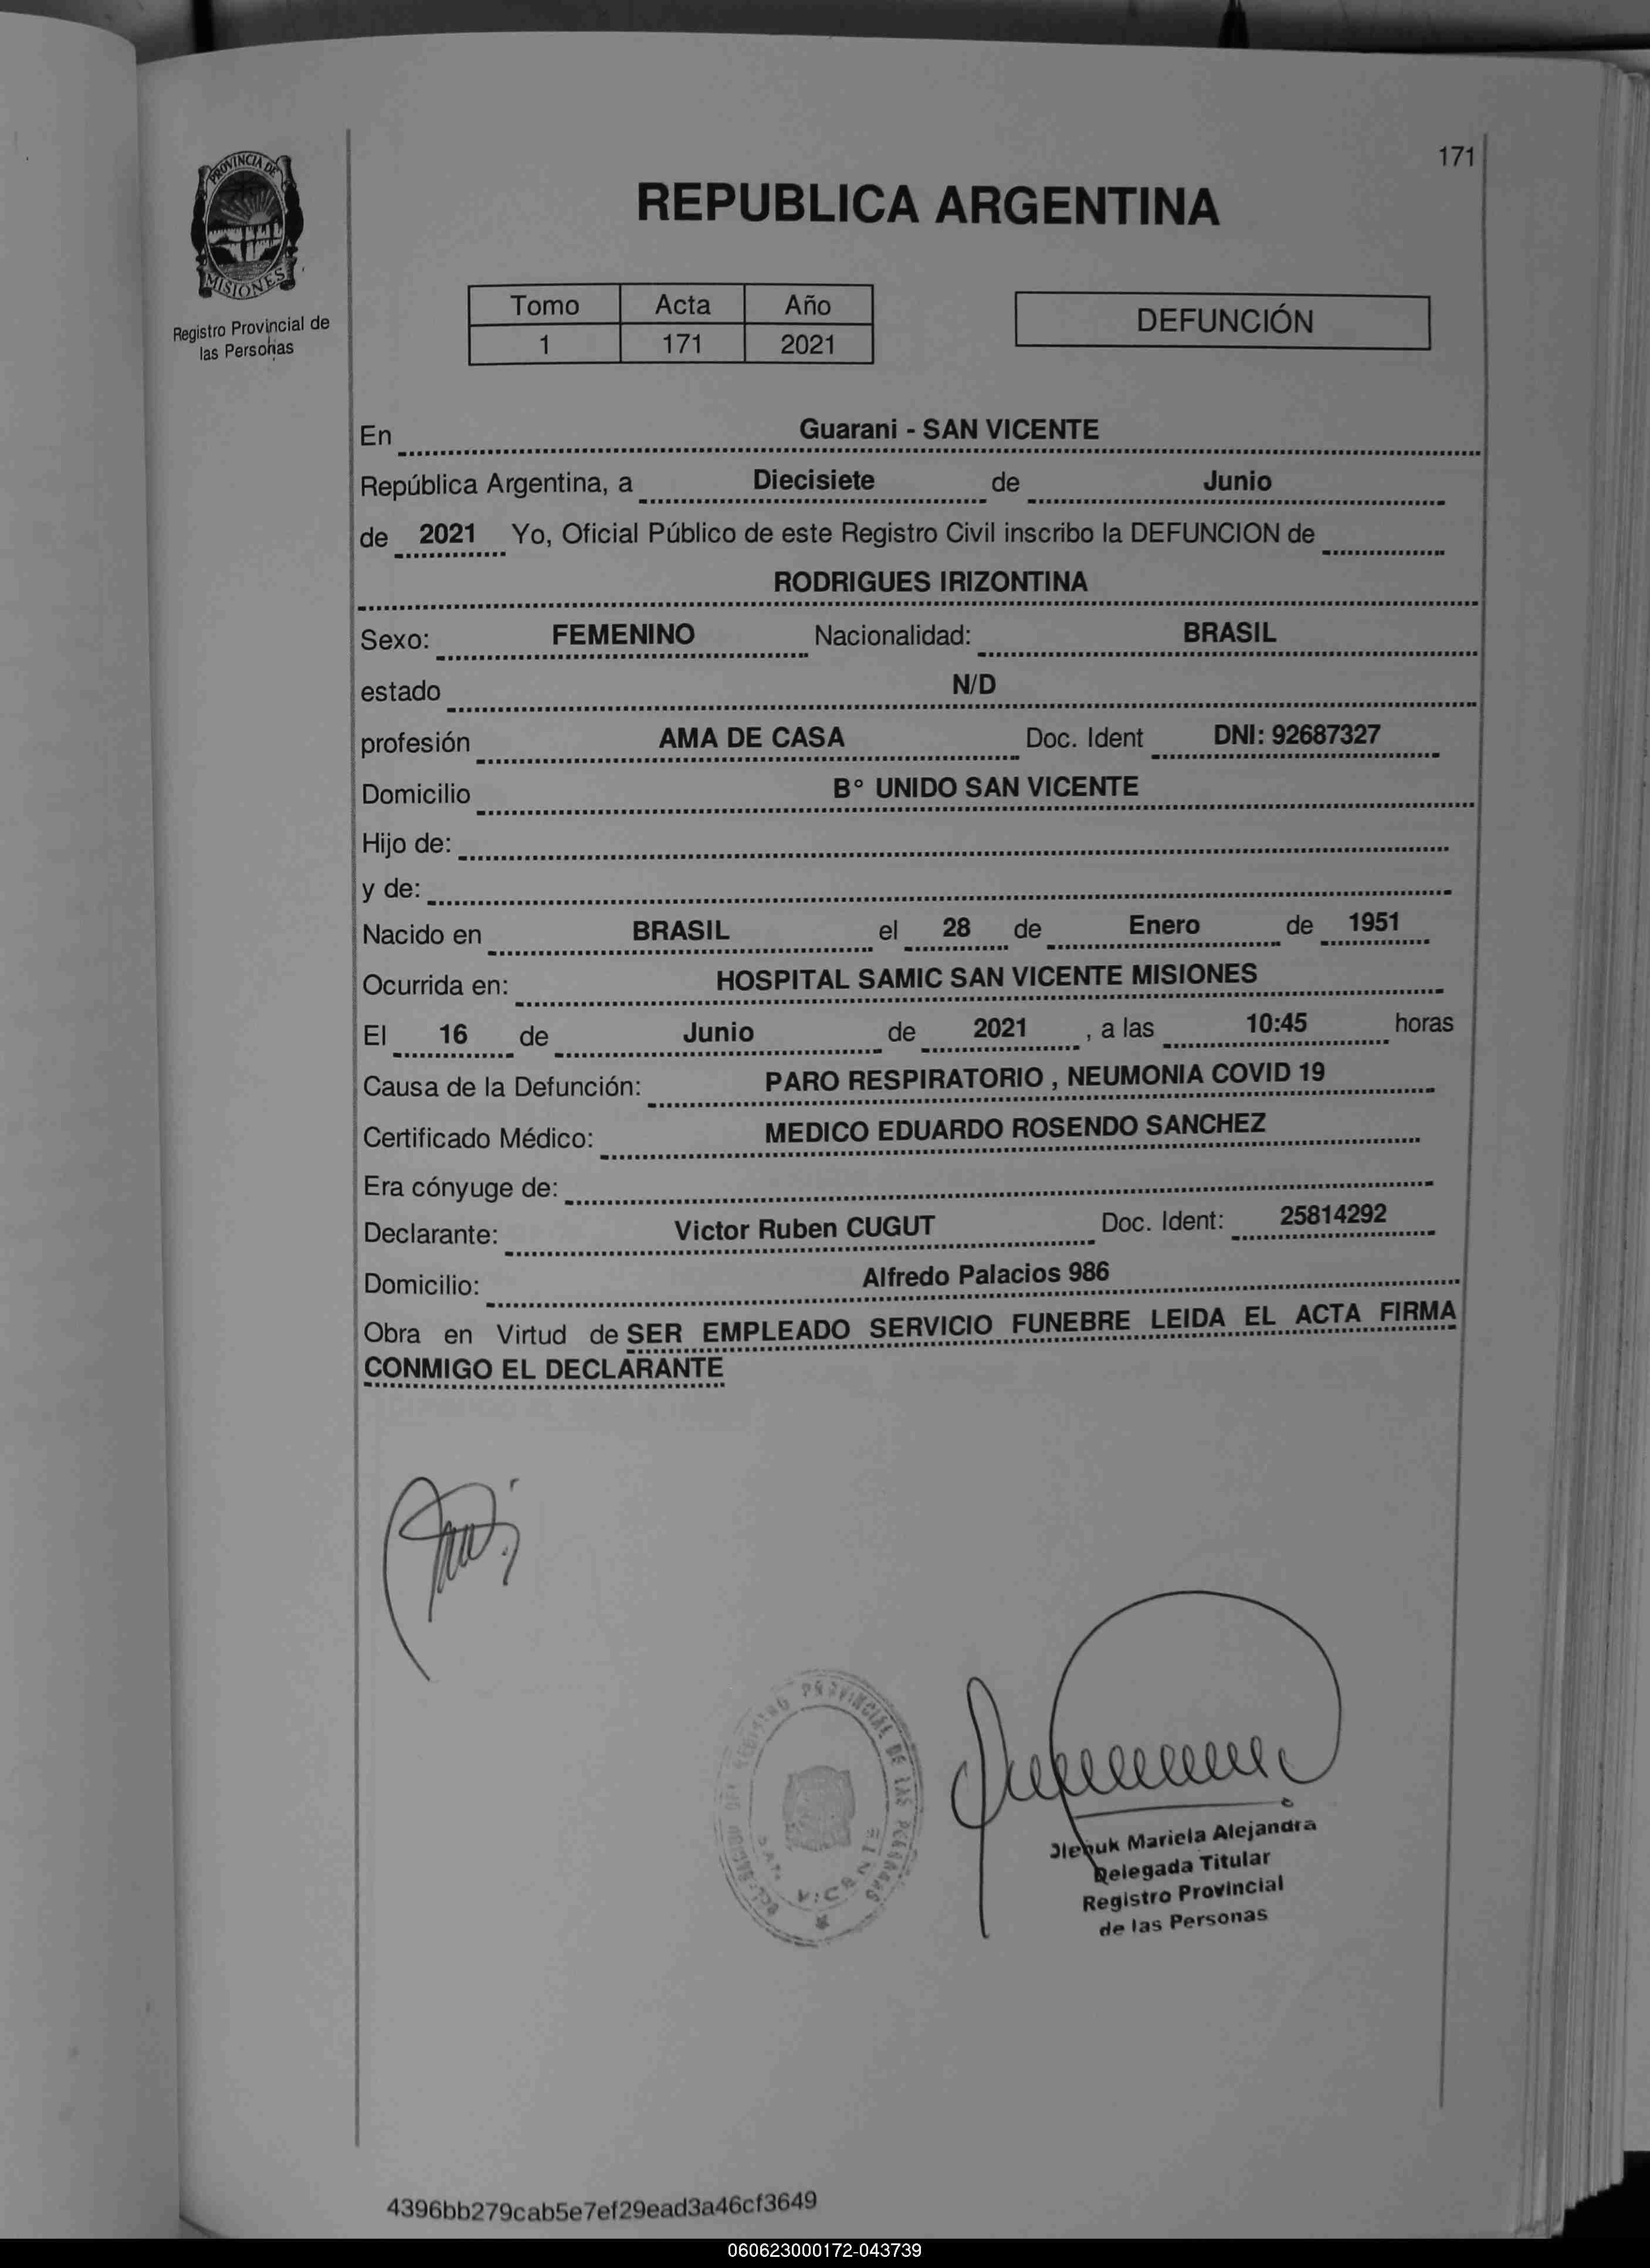 171
PROVINCIA DE
MISIONES
Registro Provincial de
las Personas
REPUBLICA ARGENTINA
Tomo Acta Año
1 171 2021
DEFUNCIÓN
En Guarani - SAN VICENTE
República Argentina, a Diecisiete de Junio
de 2021 Yo, Oficial Público de este Registro Civil inscribo la DEFUNCION de
RODRIGUES IRIZONTINA
Sexo: FEMENINO Nacionalidad: BRASIL
estado N/D
profesión AMA DE CASA Doc. Ident DNI: 92687327
Domicilio B° UNIDO SAN VICENTE
Hijo de:
y de:
Nacido en BRASIL el 28 de Enero de 1951
Ocurrida en: HOSPITAL SAMIC SAN VICENTE MISIONES
El 16 de Junio de 2021 , a las 10:45 horas
Causa de la Defunción: PARO RESPIRATORIO , NEUMONIA COVID 19
Certificado Médico: MEDICO EDUARDO ROSENDO SANCHEZ
Era cónyuge de:
Declarante: Victor Ruben CUGUT Doc. Ident: 25814292
Domicilio: Alfredo Palacios 986
Obra en Virtud de SER EMPLEADO SERVICIO FUNEBRE LEIDA EL ACTA FIRMA
CONMIGO EL DECLARANTE
REGISTRO PROVINCIAL DE LAS PERSONAS
Mariela Alejandra
Delegada Titular
Registro Provincial
de las Personas
4396bb279cab5e7ef29ead3a46cf3649
060623000172-043739